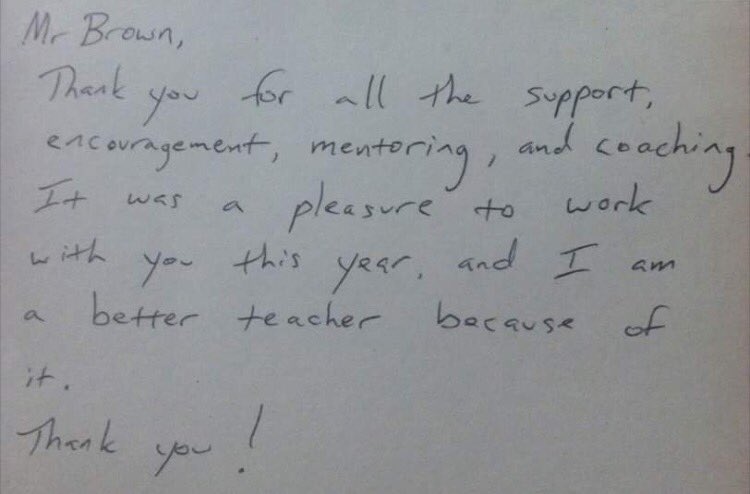 Mr Brown,
Thank you for all the support,
encouragement, mentoring, and coaching.
It was a pleasure to work
with you this year, and I am
a better teacher because of
it.
Thank you!